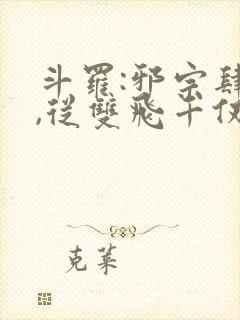 斗羅:邪宗肆
,從雙飛千仞
克萊